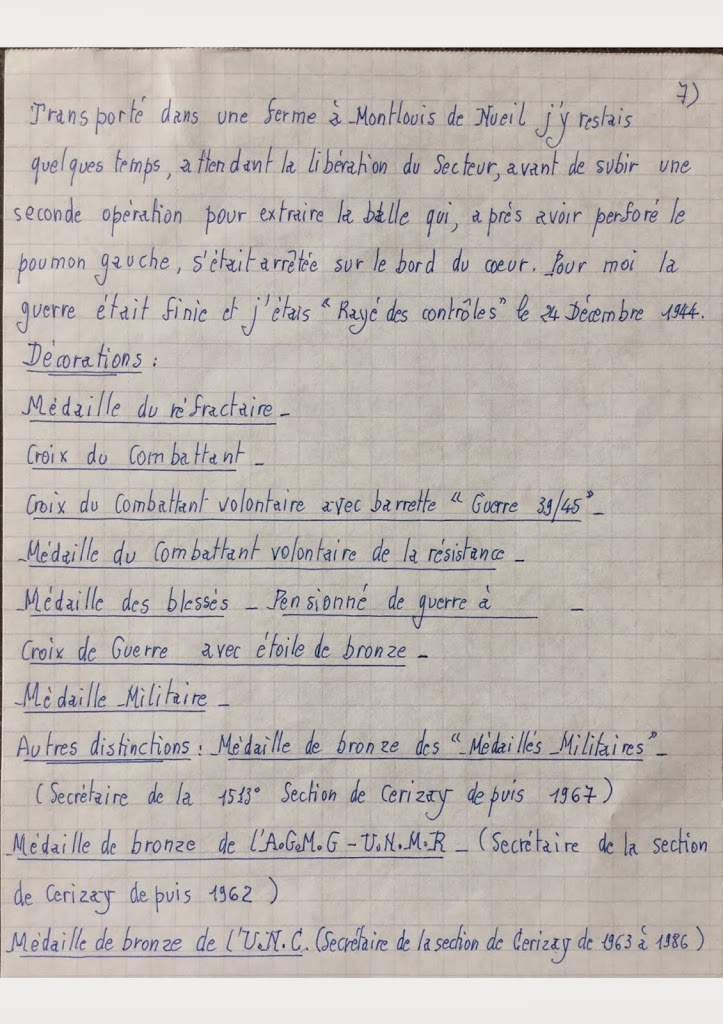 7)
Transporté dans une ferme à Montlouis de Nueil j'y restais
quelques temps, attendant la libération du Secteur, avant de subir une
seconde opération pour extraire la balle qui, après avoir perforé le
poumon gauche, s'était arrêtée sur le bord du coeur. Pour moi la
guerre était finie et j'étais "Rayé des contrôles" le 24 Décembre 1944.
Décorations :
Médaille du réfractaire _
Croix du Combattant _
Croix du Combattant volontaire avec barrette "Guerre 39/45" _
Médaille du Combattant volontaire de la résistance _
Médaille des blessés _ Pensionné de guerre à _
Croix de Guerre avec étoile de bronze _
Médaille Militaire _
Autres distinctions : Médaille de bronze des "Médaillés Militaires" _
(Secrétaire de la 1513° Section de Cerizay depuis 1967)
Médaille de bronze de l'A.G.M.G - U.N.M.R _ (Secrétaire de la section
de Cerizay depuis 1962)
Médaille de bronze de l'U.N.C. (Secrétaire de la section de Cerizay de 1963 à 1986)